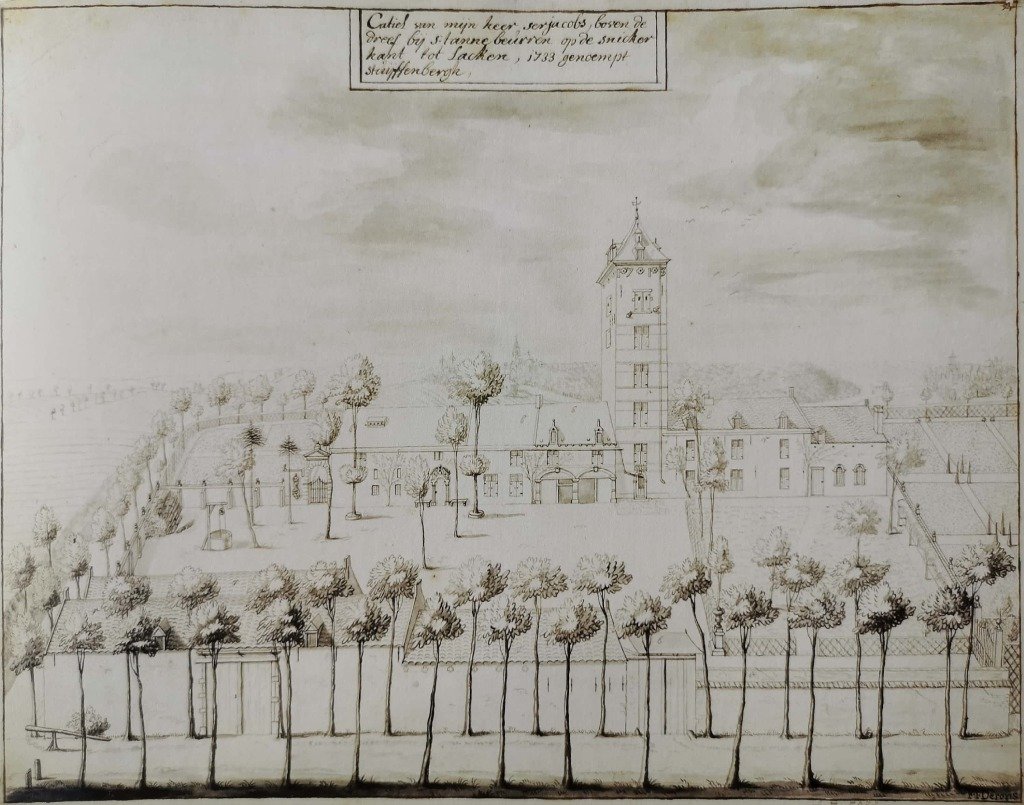 Catiel van mijn heer, serjacobs, boven de
dreef bij s-tanne beurren op de snicker
kant tot Lacken, 1733 genoempt
stuijffenbergh,